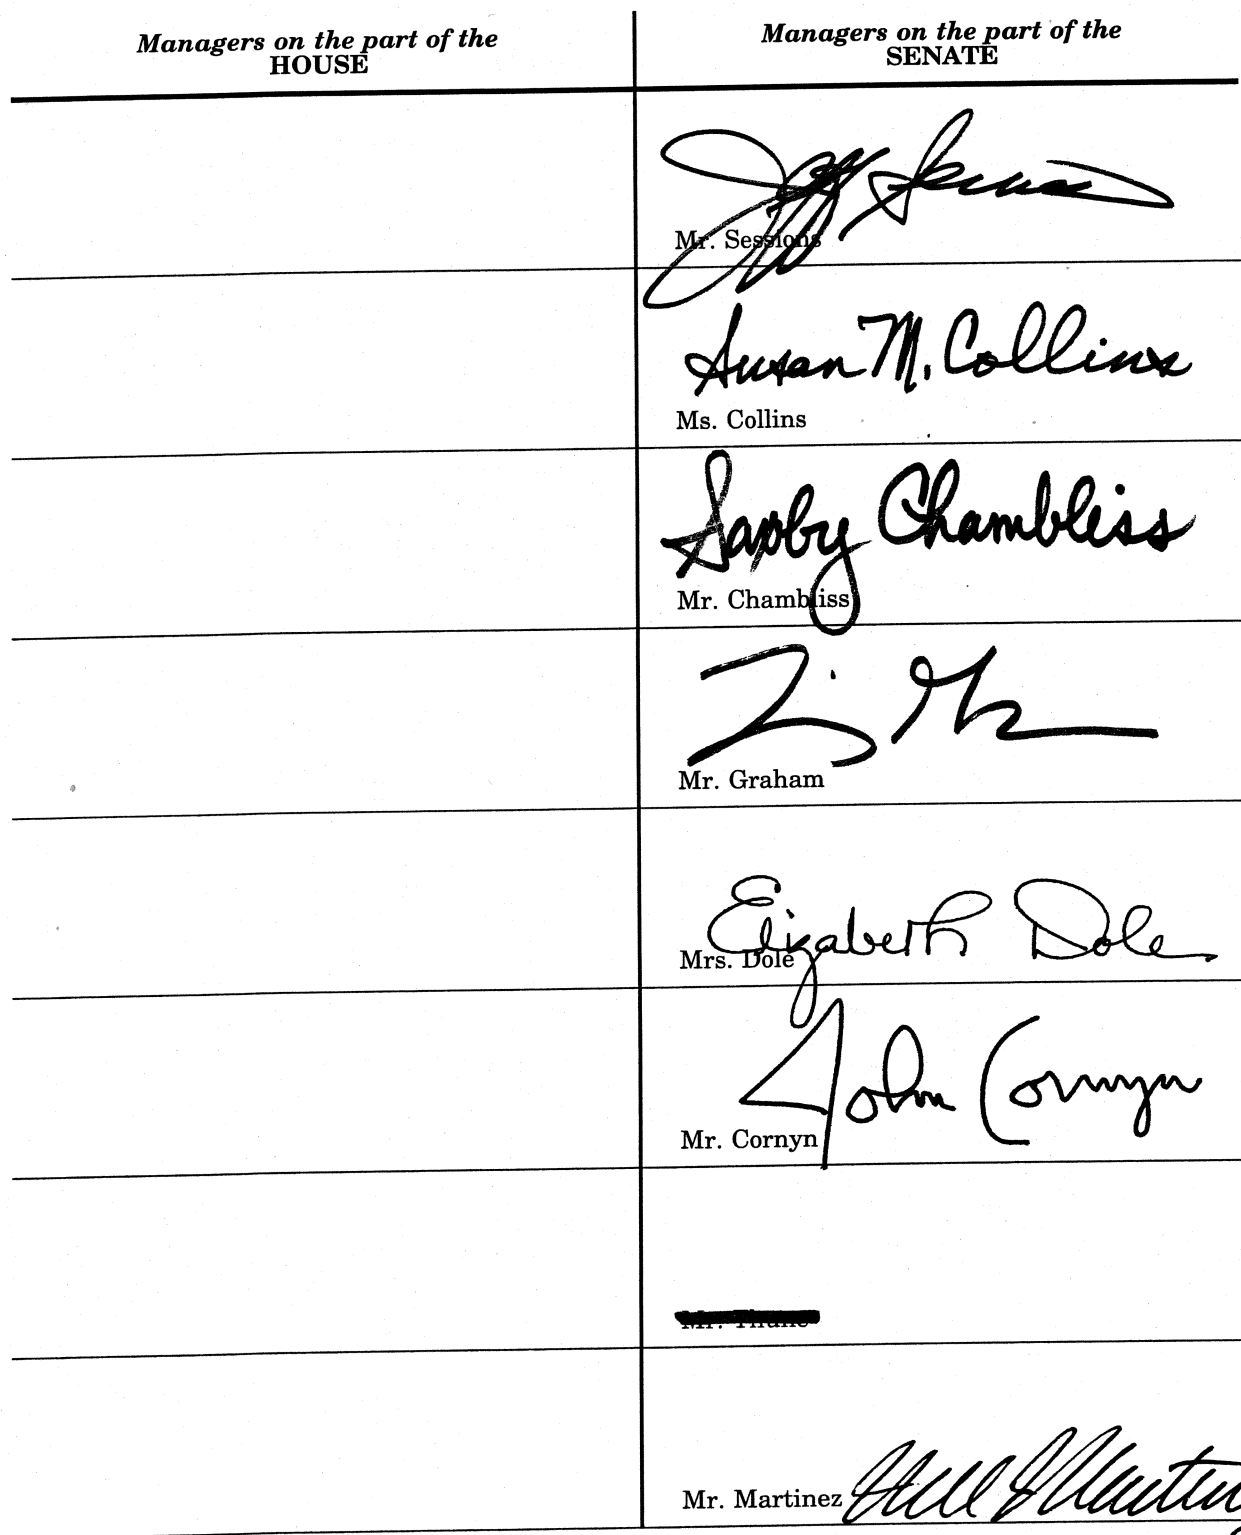 Managers on the part of the
HOUSE
Managers on the part of the
SENATE
Jeff Sessions
Mr. Sessions
Susan M. Collins
Ms. Collins
Saxby Chambliss
Mr. Chambliss
Mr. Graham
Elizabeth Dole
Mrs. Dole
John Cornyn
Mr. Cornyn
Mr. Thune
Mr. Martinez